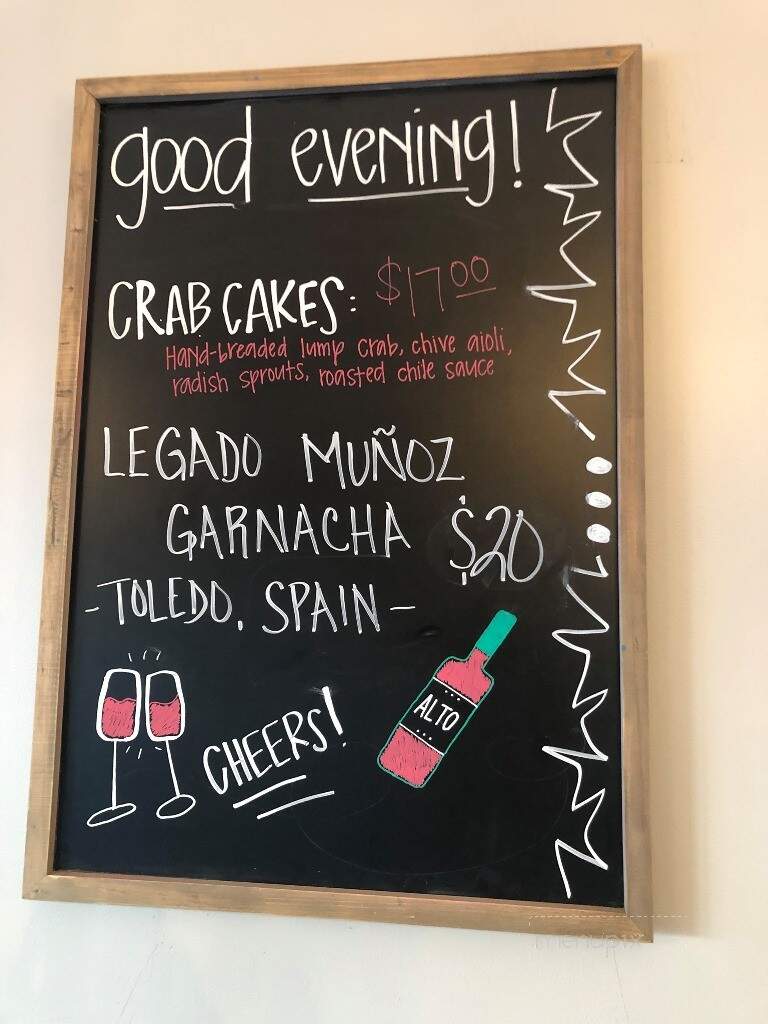 good evening!
CRAB CAKES: $17.00
Hand-breaded lump crab, chive aioli,
radish sprouts, roasted chile sauce
LEGADO MUÑOZ
GARNACHA $20
-TOLEDO, SPAIN-
ALTO
CHEERS!
menupix